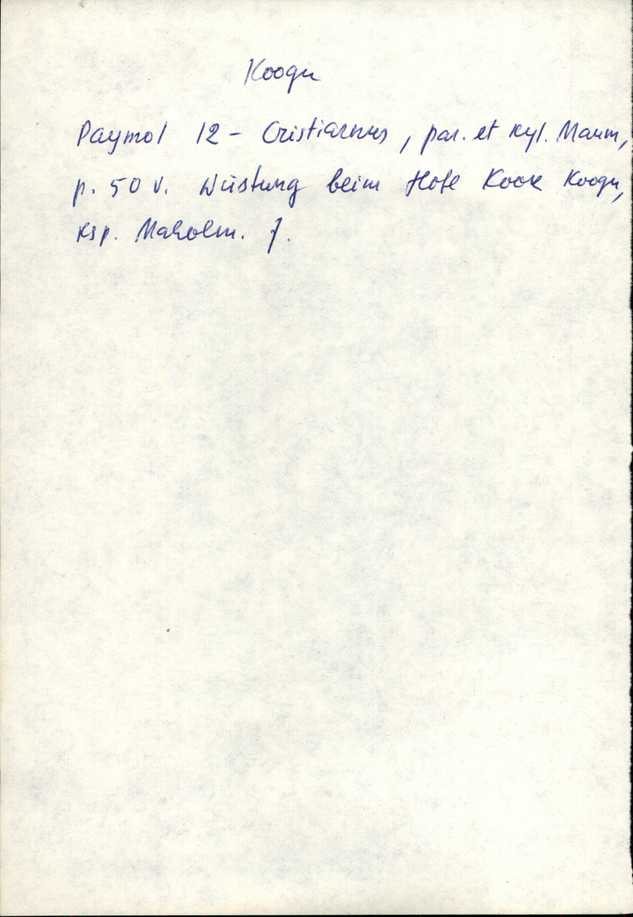 Koogu
Paymol 12 - Cristiarnus, par. et kyl. Maum,
p. 50 v. Wüstung beim Hofe Kook Koogu,
Ksp. Maholm. J.